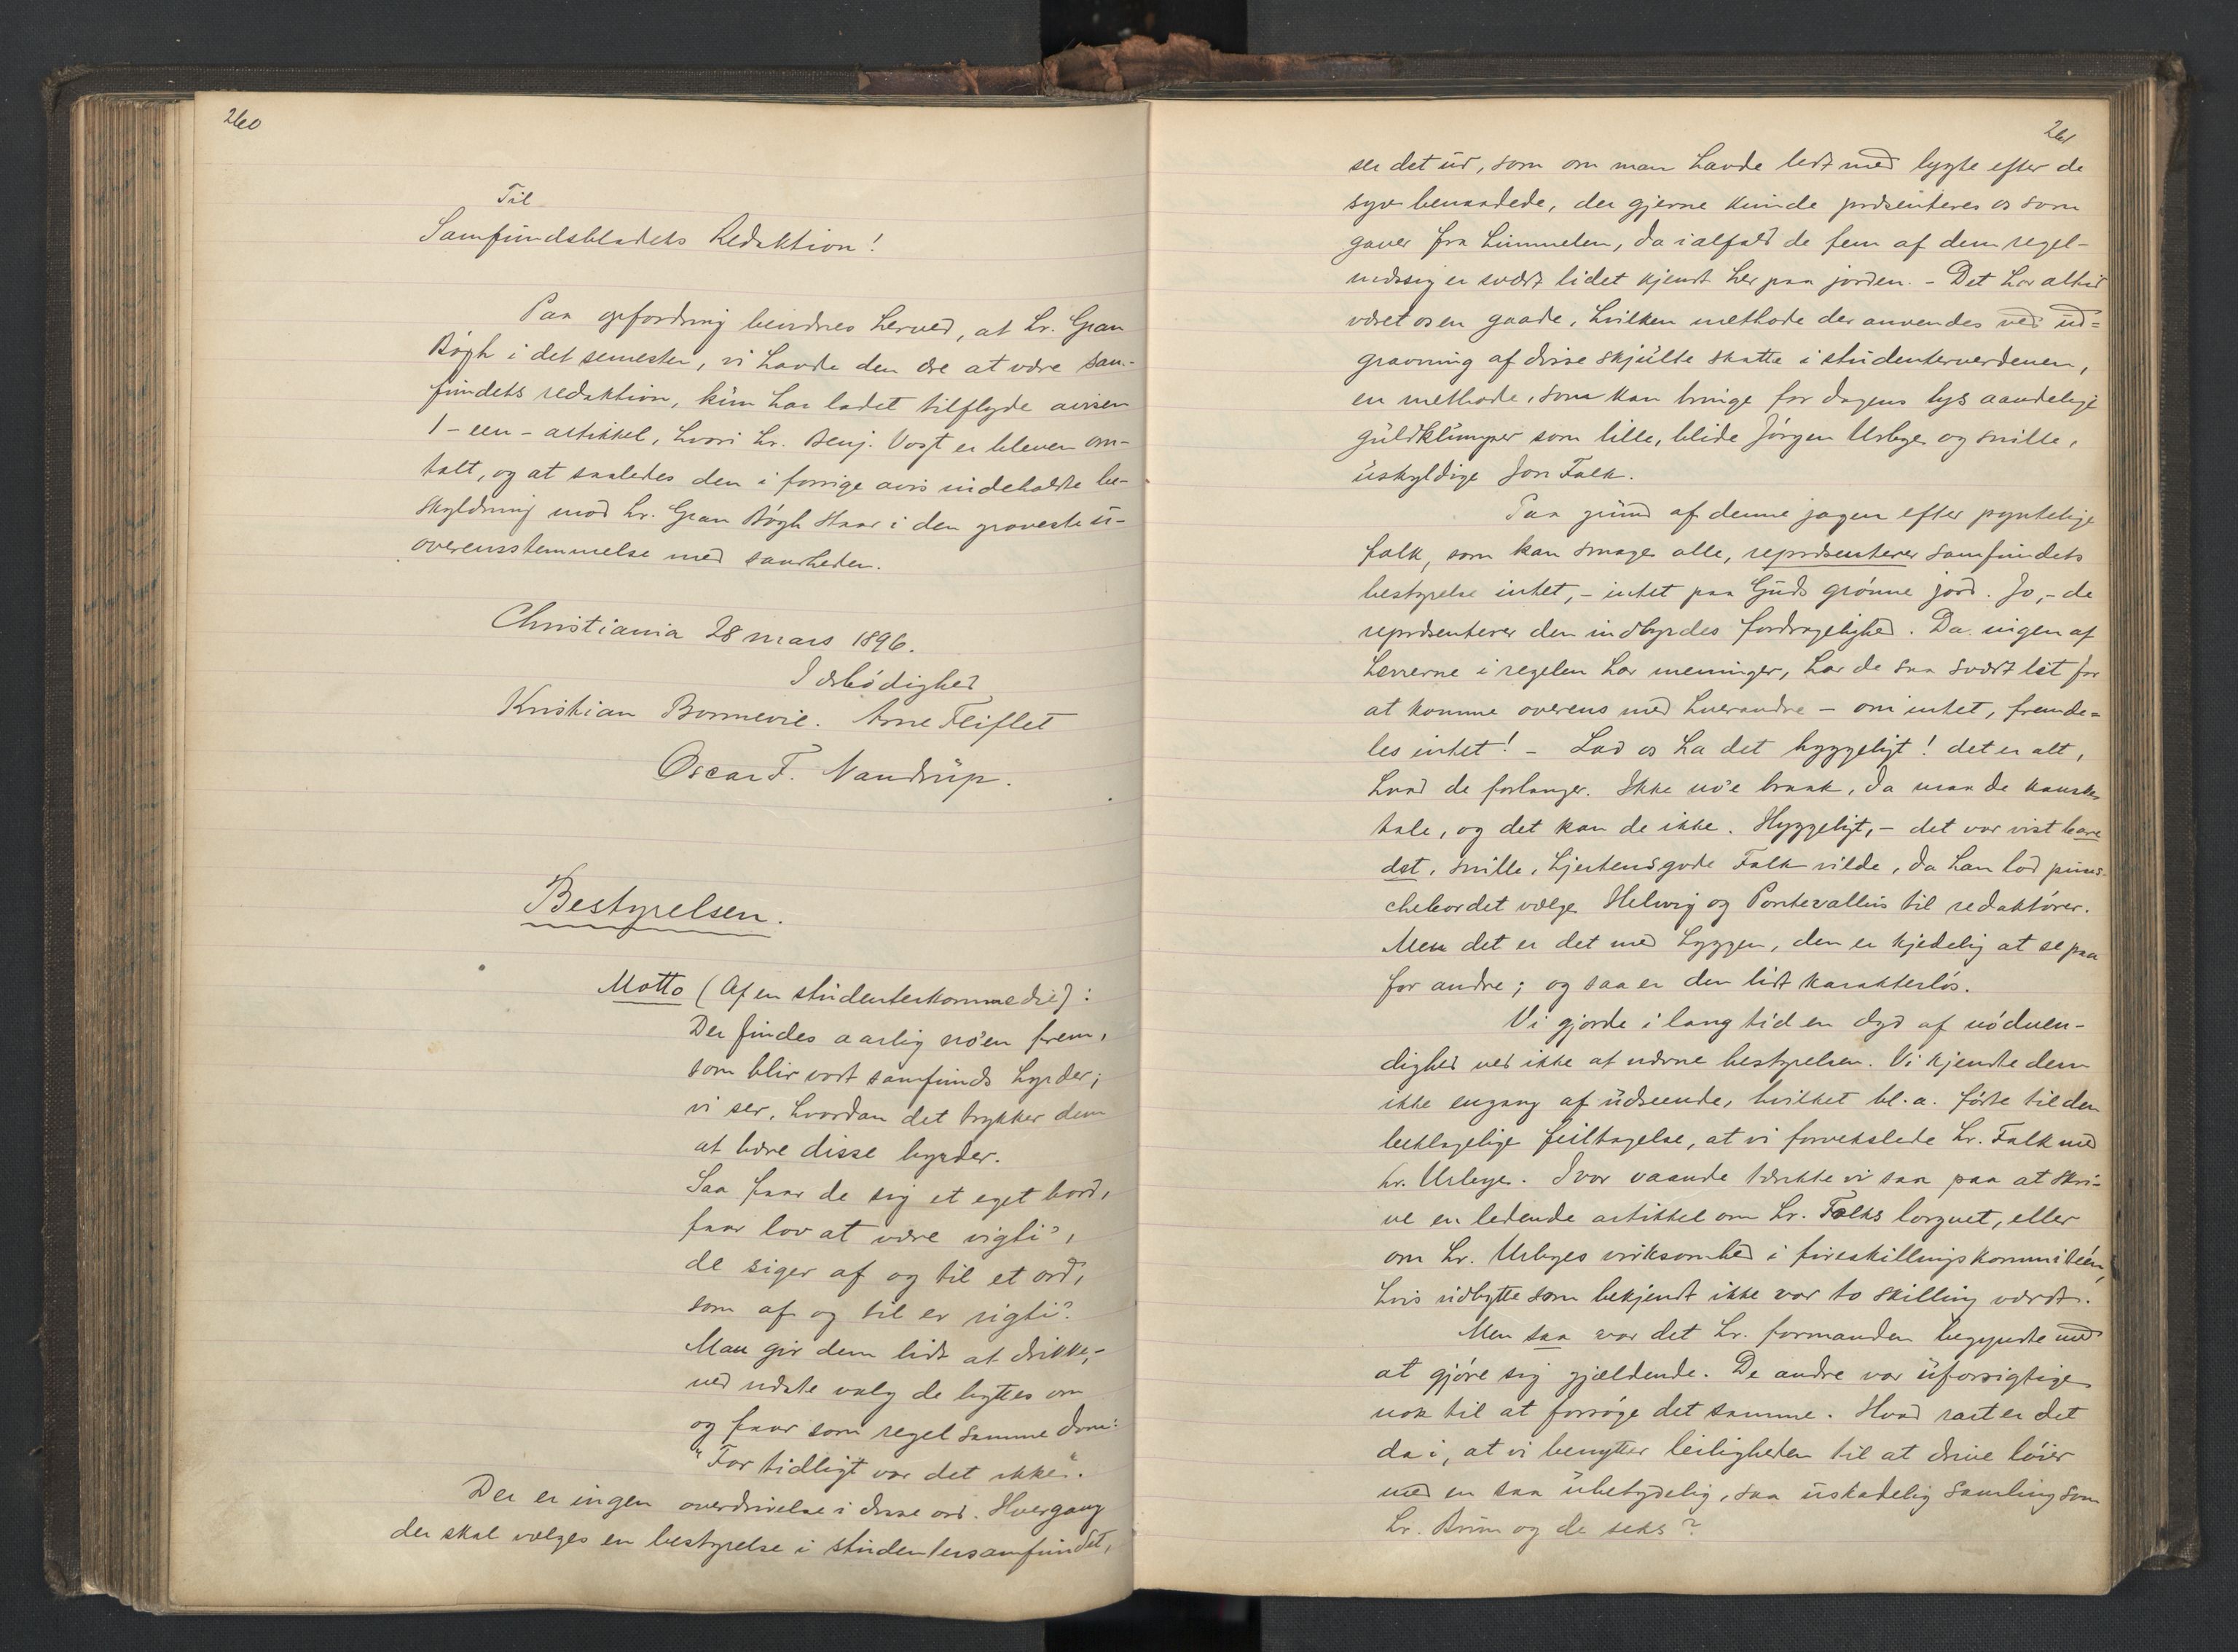 260
Til
Samfundsbladets Redaktion!
Paa opfordring bevidnes herved, at hr. Gran
Bøgh i det semester, vi havde den ære at være sam-
fundets redaktion, kun har ladet tilflyde avisen
1 - een - artikkel, hvori hr. Benj. Vogt er bleven om-
talt, og at saaledes den i forrige avis indeholdte be-
skyldning mod hr. Gran Bøgh staar i den groveste u-
overensstemmelse med sandheden.
Christiania 28 mars 1896.
I ærbødighed
Kristian Bonnevie. Arne Fleiflet
Oscar F. Nandrup.
Bestyrelsen.
Motto (Af en studenterkommedie):
Der findes aarlig no'en frem,
som blir vort samfunds hyrder;
vi ser, hvordan det trykker dem
at bære disse byrder.
Saa faar de sig et eget bord,
faar lov at være vigti',
de siger af og til et ord,
som af og til er rigti'.
Man gir dem lidt at drikke,-
ved næste valg de byttes om
og faar som regel samme dom:
"For tidligt var det ikke".
Der er ingen overdrivelse i disse ord. Hvergang
der skal vælges en bestyrelse i studentersamfundet,
261
ser det ud, som om man havde ledt med lygte efter de
syv benaadede, der gjerne kunde præsenteres os som
gaver fra himmelen, da ialfald de fem af dem regel-
mæssig er svært lidet kjendt her paa jorden. - Det har altid
været os en gaade, hvilken methode der anvendes ved ud=
gravning af disse skjulte skatte i studenterverdenen,
en methode, som kan bringe for dagens lys aandelige
guldklumper som lille, blide Jørgen Urbye og snille,
uskyldige Jon Falk.
Paa grund af denne jagen efter pyntelige
folk, som kan smage alle, repræsenterer samfundets
bestyrelse intet, - intet paa Guds grønne jord. Jo, - de
repræsenterer den indbyrdes fordragelighed. Da ingen af
herrerne i regelen har meninger, har de saa svært let for
at komme overens med hverandre - om intet, fremde=
les intet! - Lad os ha det hyggeligt! det er alt,
hvad de forlanger. Ikke no'e braak, da maa de kanske
tale, og det kan de ikke. Hyggeligt, - det var vist bare
det, snille, hjertensgode Falk vilde, da han lod puns-
chebordet vælge Helwig og Pontevallin til redaktører.
Men det er det med hyggen, den er kjedelig at se paa
for andre; og saa er den lidt karakterløs.
Vi gjorde i lang tid en dyd af nødven-
dighed ved ikke at nævne bestyrelsen. Vi kjendte dem
ikke engang af udseende, hvilket bl. a. førte til den
beklagelige feiltagelse, at vi forvekslede hr. Falk med
hr. Urbye. I vor vaande tænkte vi saa paa at skri-
ve en ledende artikkel om hr. Falks lorgnet, eller
om hr. Urbyes virksomhed i fireskillingskommiteén,
hvis udbytte som bekjendt ikke var to skilling værdt.
Men saa var det hr. formanden begyndte med
at gjøre sig gjældende. De andre var uforsigtige
nok til at forsøge det samme. Hvad rart er det
da i, at vi benytter leiligheden til at drive løier
med en saa ubetydelig, saa uskadelig samling som
hr. Brun og de seks?